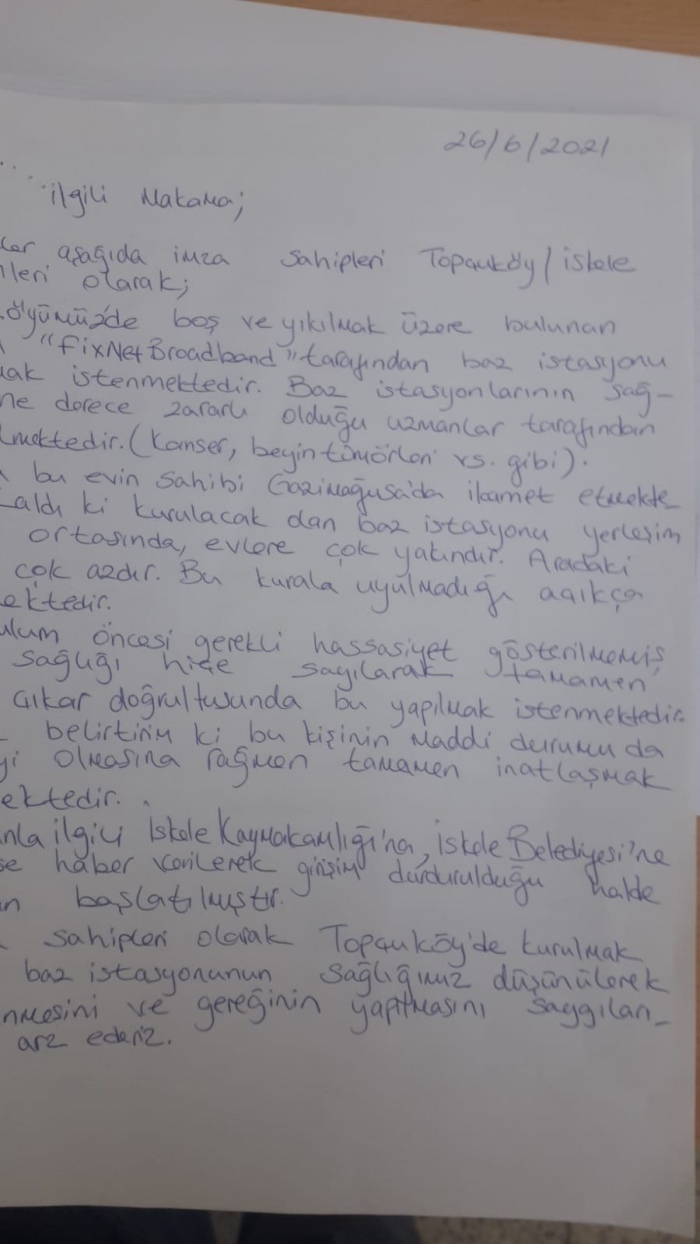 26/6/2021
ilgili Makama;
ler aşağıda imza sahipleri Topçuköy/iskele
ileri olarak;
öyümüzde boş ve yıkılmak üzere bulunan
"FixNetBroadband" tarafından baz istasyonu
mak istenmektedir. Baz istasyonlarının sağ-
ne derece zararlı olduğu uzmanlar tarafından
lmektedir. (Kanser, beyin tümörleri vs. gibi).
bu evin sahibi Gazimağusa'da ikamet etmekte
kaldı ki kurulacak olan baz istasyonu yerleşim
ortasında, evlere çok yakındır. Aradaki
çok azdır. Bu kurala uyulmadığı açıkça
ektedir.
ulum öncesi gerekli hassasiyet gösterilmemiş
sağlığı hiçe sayılarak tamamen
çıkar doğrultusunda bu yapılmak istenmektedir.
belirtirim ki bu kişinin maddi durumu da
yi olmasına rağmen tamamen inatlaşmak
ektedir.
nla ilgili İskele Kaymakamlığı'na, İskele Belediyesi'ne
se haber verilerek girişim durdurulduğu halde
n başlatılmıştır.
sahipleri olarak Topçuköy'de kurulmak
baz istasyonunun sağlığımız düşünülerek
nmesini ve gereğinin yapılmasını saygılan_
arz ederiz.